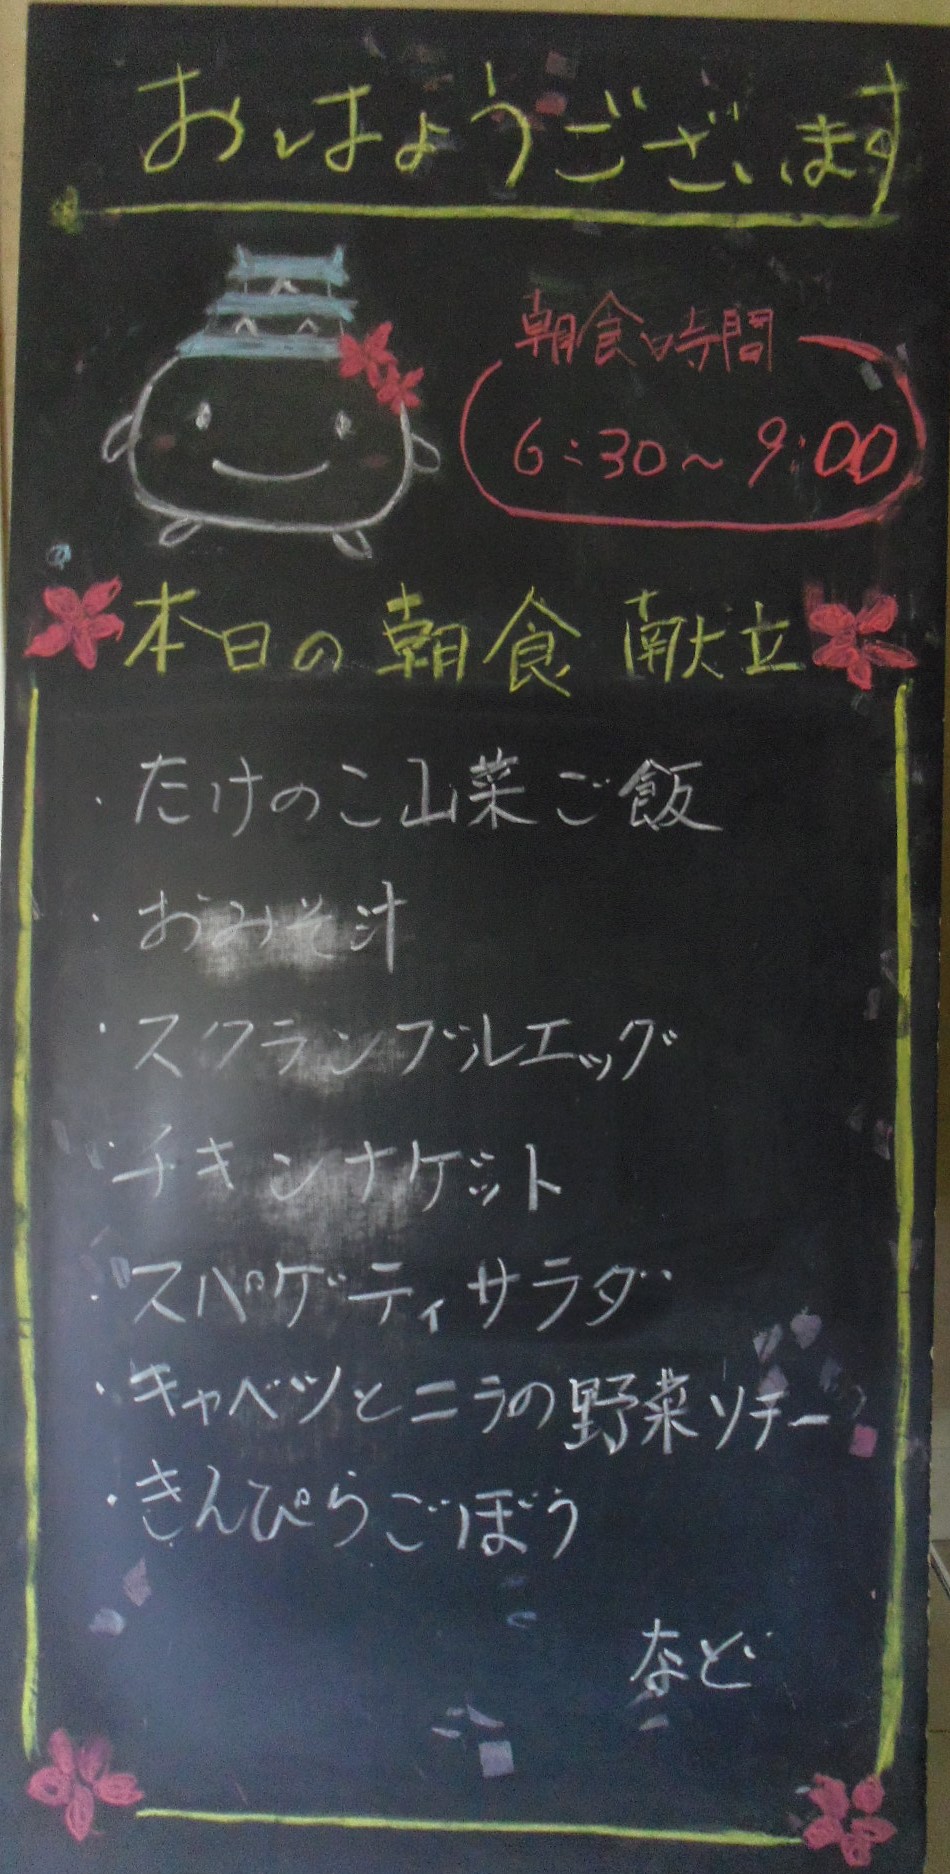 おはようございます
朝食時間
6:30～9:00
本日の朝食献立
・たけのこ山菜ご飯
・おみそ汁
・スクランブルエッグ
・チキンナゲット
・スパゲティサラダ
・キャベツとニラの野菜ソテー
・きんぴらごぼう
など